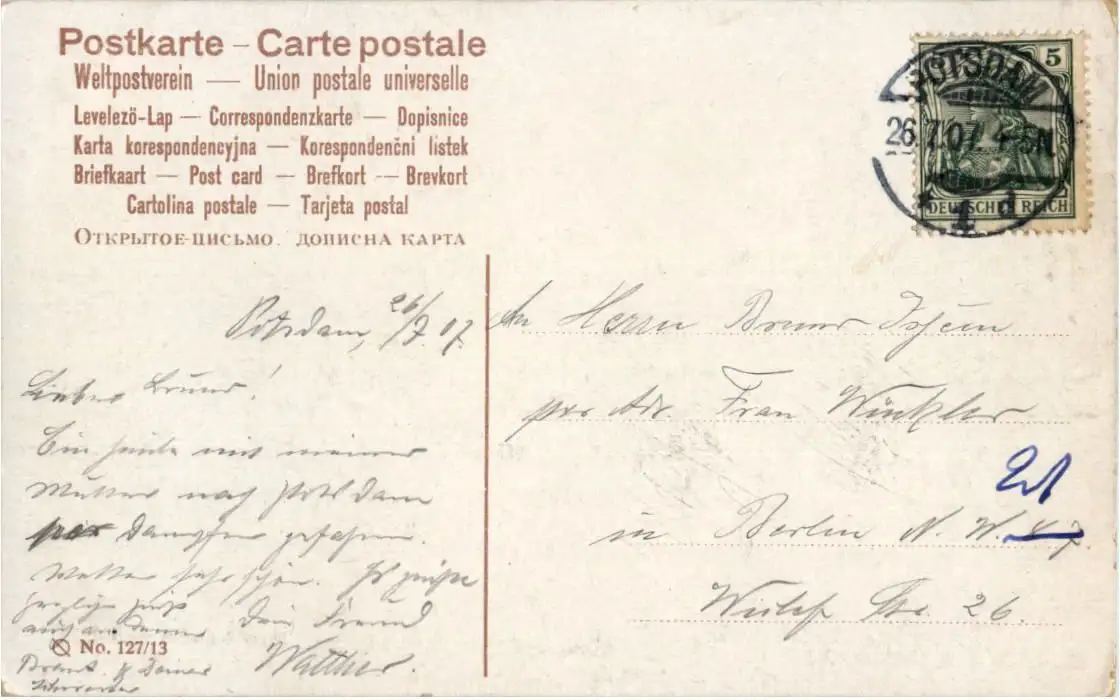 Postkarte – Carte postale
Weltpostverein — Union postale universelle
Levelezö-Lap — Correspondenzkarte — Dopisnice
Karta korespondencyjna — Korespondenční listek
Briefkaart — Post card — Brefkort — Brevkort
Cartolina postale — Tarjeta postal
Открытое письмо. дописна карта
5
POTSDAM
26.7.07. 4-5N.
* 1 d
DEUTSCHES REICH
Potsdam, 26/7 07.
Lieber Bruno!
Bin heute mit meiner
Mutter nach Potsdam
per Dampfer gefahren.
Wetter sehr schön. Es grüßt
Dein Freund
Walther.
herzlich
auch an Deine
Braut & Deiner
No. 127/13
An Herrn Bruno
per Adr. Frau Winkler
in Berlin N. W.
Str. 26.